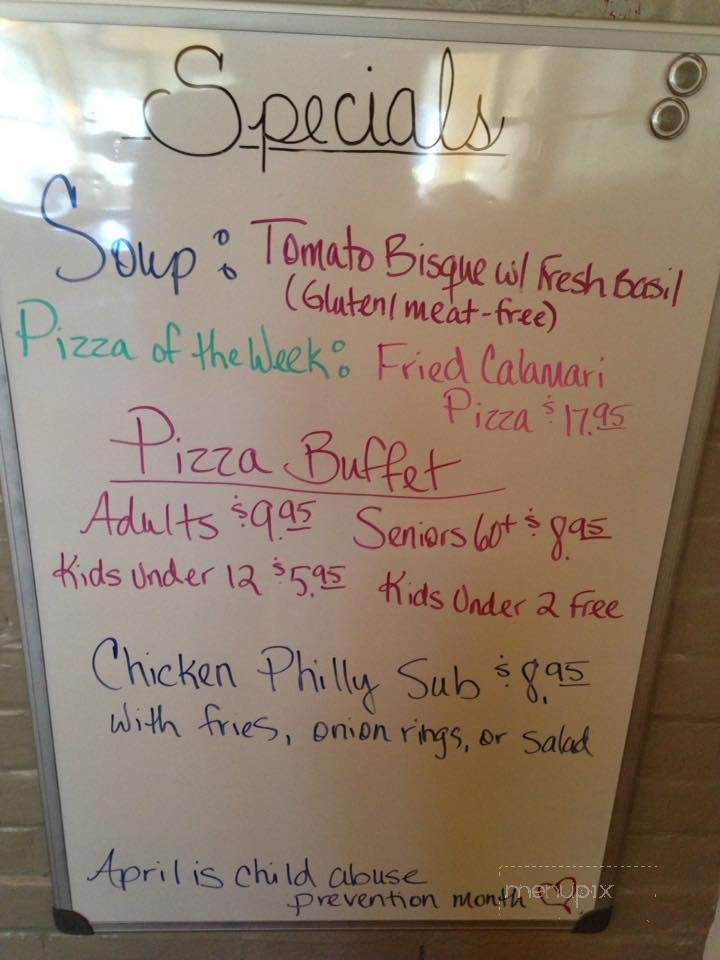 Specials
Soup: Tomato Bisque w/ Fresh Basil
(Gluten/meat-free)
Pizza of the Week: Fried Calamari
Pizza $17.95
Pizza Buffet
Adults $9.95 Seniors 60+ $8.95
Kids Under 12 $5.95 Kids Under 2 Free
Chicken Philly Sub $8.95
with fries, onion rings, or salad
April is child abuse
prevention month
menupix